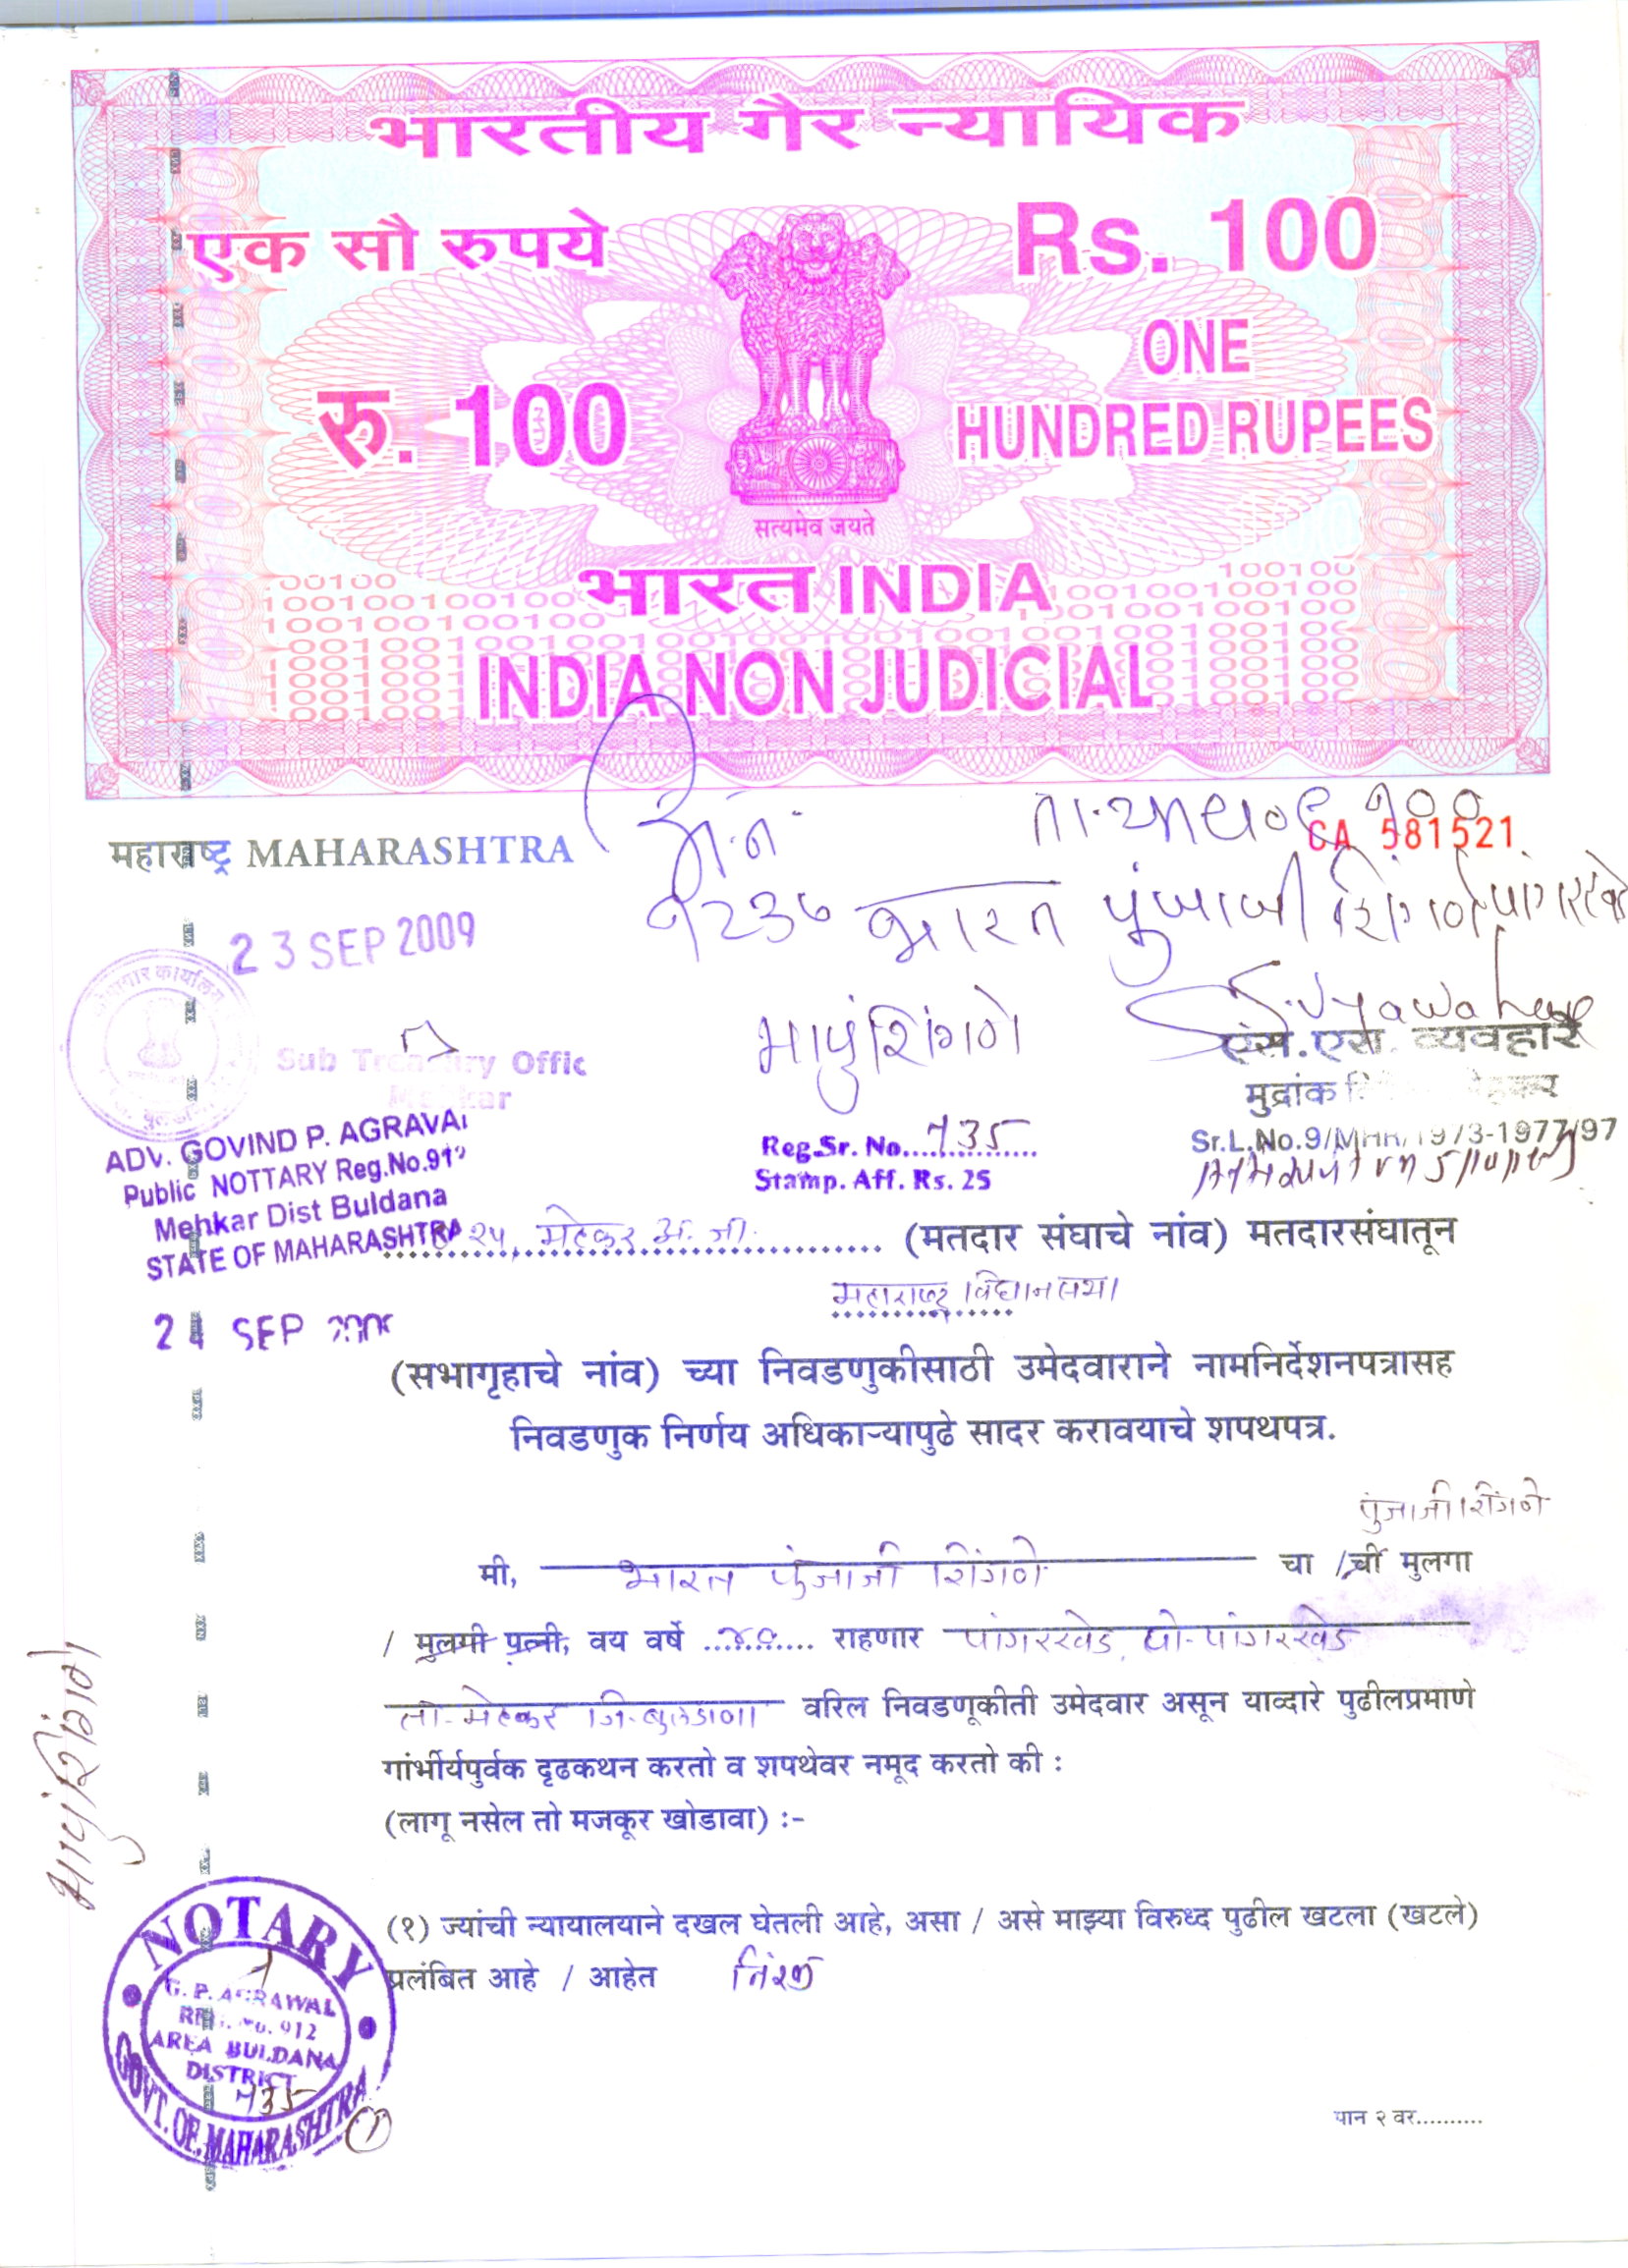 भारतीय गैर न्यायिक
एक सौ रुपये
Rs. 100
रु. 100
ONE
HUNDRED RUPEES
सत्यमेव जयते
भारत INDIA
INDIA NON JUDICIAL
महाराष्ट्र MAHARASHTRA
CA 581521
भारत पुंजाजी शिंगणे
23 SEP 2009
भापुंशिंगणे
एस.एस. व्यवहारे
Sub Treasury Offic
मुद्रांक
Sr.L.No.9/MHR/1973-1977/97
ADV. GOVIND P. AGRAVAL
Public NOTTARY Reg.No.912
Mehkar Dist Buldana
STATE OF MAHARASHTRA
Reg.Sr. No....735
Stamp. Aff. Rs. 25
२५, मेहकर अ. जा. (मतदार संघाचे नांव) मतदारसंघातून
महाराष्ट्र विधानसभा
24 SEP 2009
(सभागृहाचे नांव) च्या निवडणुकीसाठी उमेदवाराने नामनिर्देशनपत्रासह
निवडणुक निर्णय अधिकाऱ्यापुढे सादर करावयाचे शपथपत्र.
पुंजाजी शिंगणे
मी, भारत पुंजाजी शिंगणे चा / ची मुलगा
/ मुलगी पत्नी, वय वर्षे ..४०.... राहणार पांगरखेड, पो-पांगरखेड
ता-मेहकर जि-बुलडाणा वरिल निवडणूकीती उमेदवार असून याव्दारे पुढीलप्रमाणे
गांर्भीर्यपुर्वक दृढकथन करतो व शपथेवर नमूद करतो की :
(लागू नसेल तो मजकूर खोडावा) :-
भापुंशिंगणे
(१) ज्यांची न्यायालयाने दखल घेतली आहे, असा / असे माझ्या विरुध्द पुढील खटला (खटले)
प्रलंबित आहे / आहेत निरंक
NOTARY
G. P. AGRAWAL
REG. No. 912
AREA BULDANA
DISTRICT
735
GOVT. OF MAHARASHTRA
पान २ वर..........